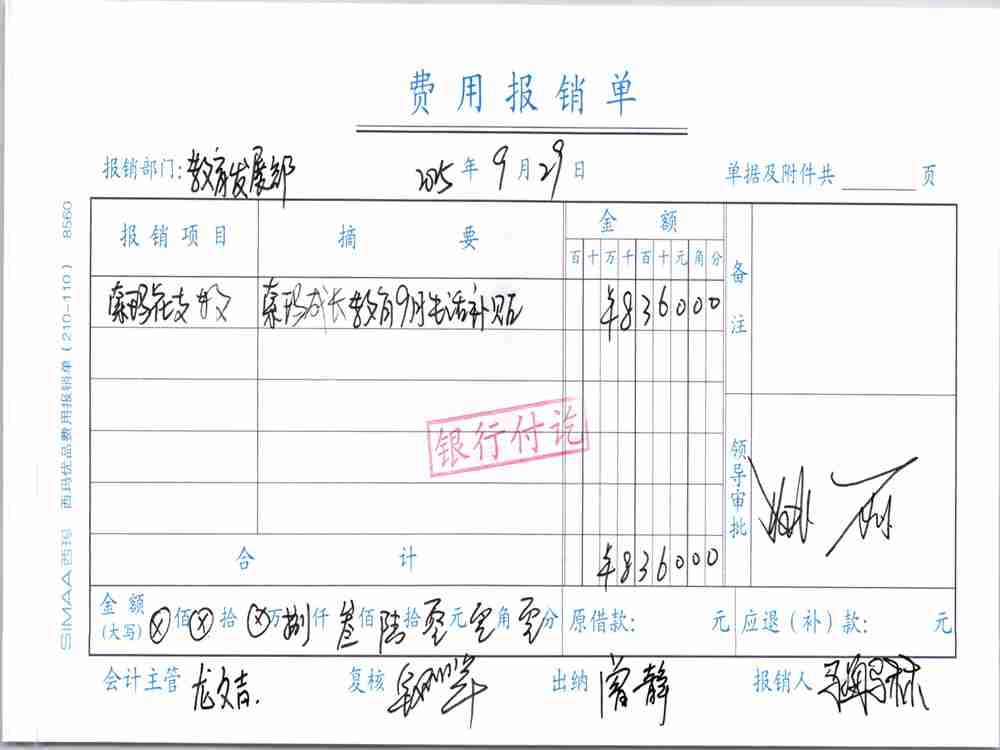 费用报销单
报销部门：教育发展部 2025年9月29日 单据及附件共 页
报销项目 摘要 金额 备注
百十万千百十元角分
索玛花支教 索玛成长教育9月生活补贴 ¥836000
银行付讫
领导审批 姚丽
合计 ¥836000
金额(大写) ⊗佰⊗拾⊗万捌仟叁佰陆拾零元零角零分 原借款： 元 应退（补）款： 元
会计主管 龙文吉 复核 出纳 曾静 报销人
SIMAA西玛 西玛优品费用报销单（210-110） 8560